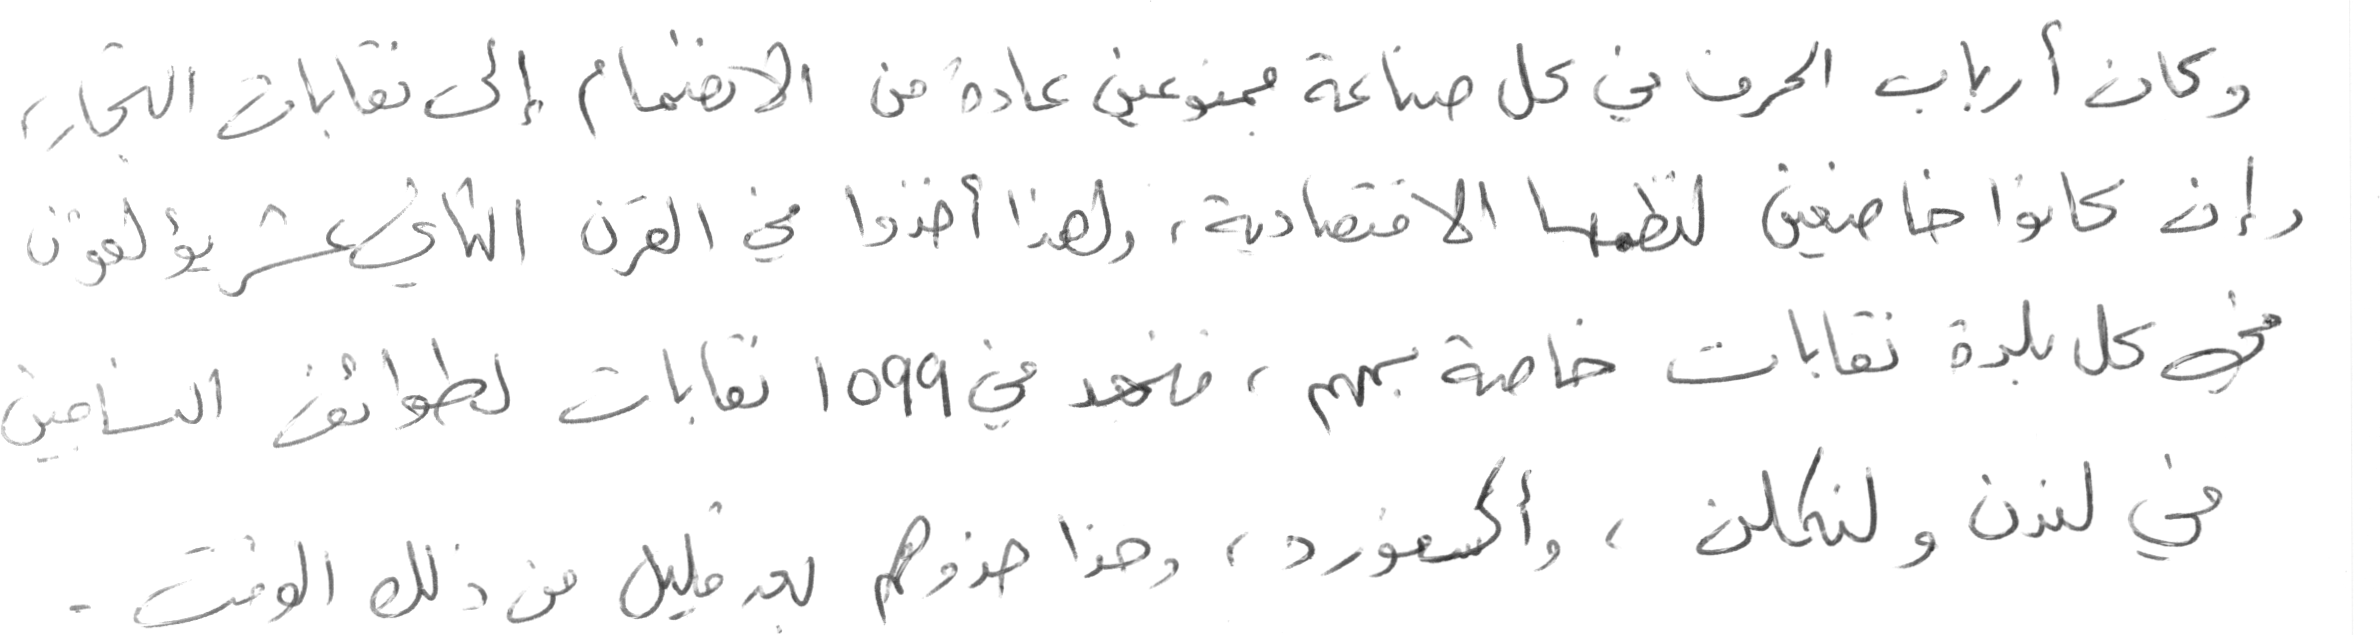 وكان أرباب الحرف في كل صناعة ممنوعين عادة من الانضمام إلى نقابات التجار،
وإن كانوا خاضعين لنظمها الاقتصادية، ولهذا أخذوا في القرن الثاني عشر يؤلفون
في كل بلدة نقابات خاصة بهم، فنجد في ١٠٩٩ نقابات لطوائف النساجين
في لندن ولنكلن، وأكسفورد، وحذا حذوهم بعد قليل من ذلك الوقت.